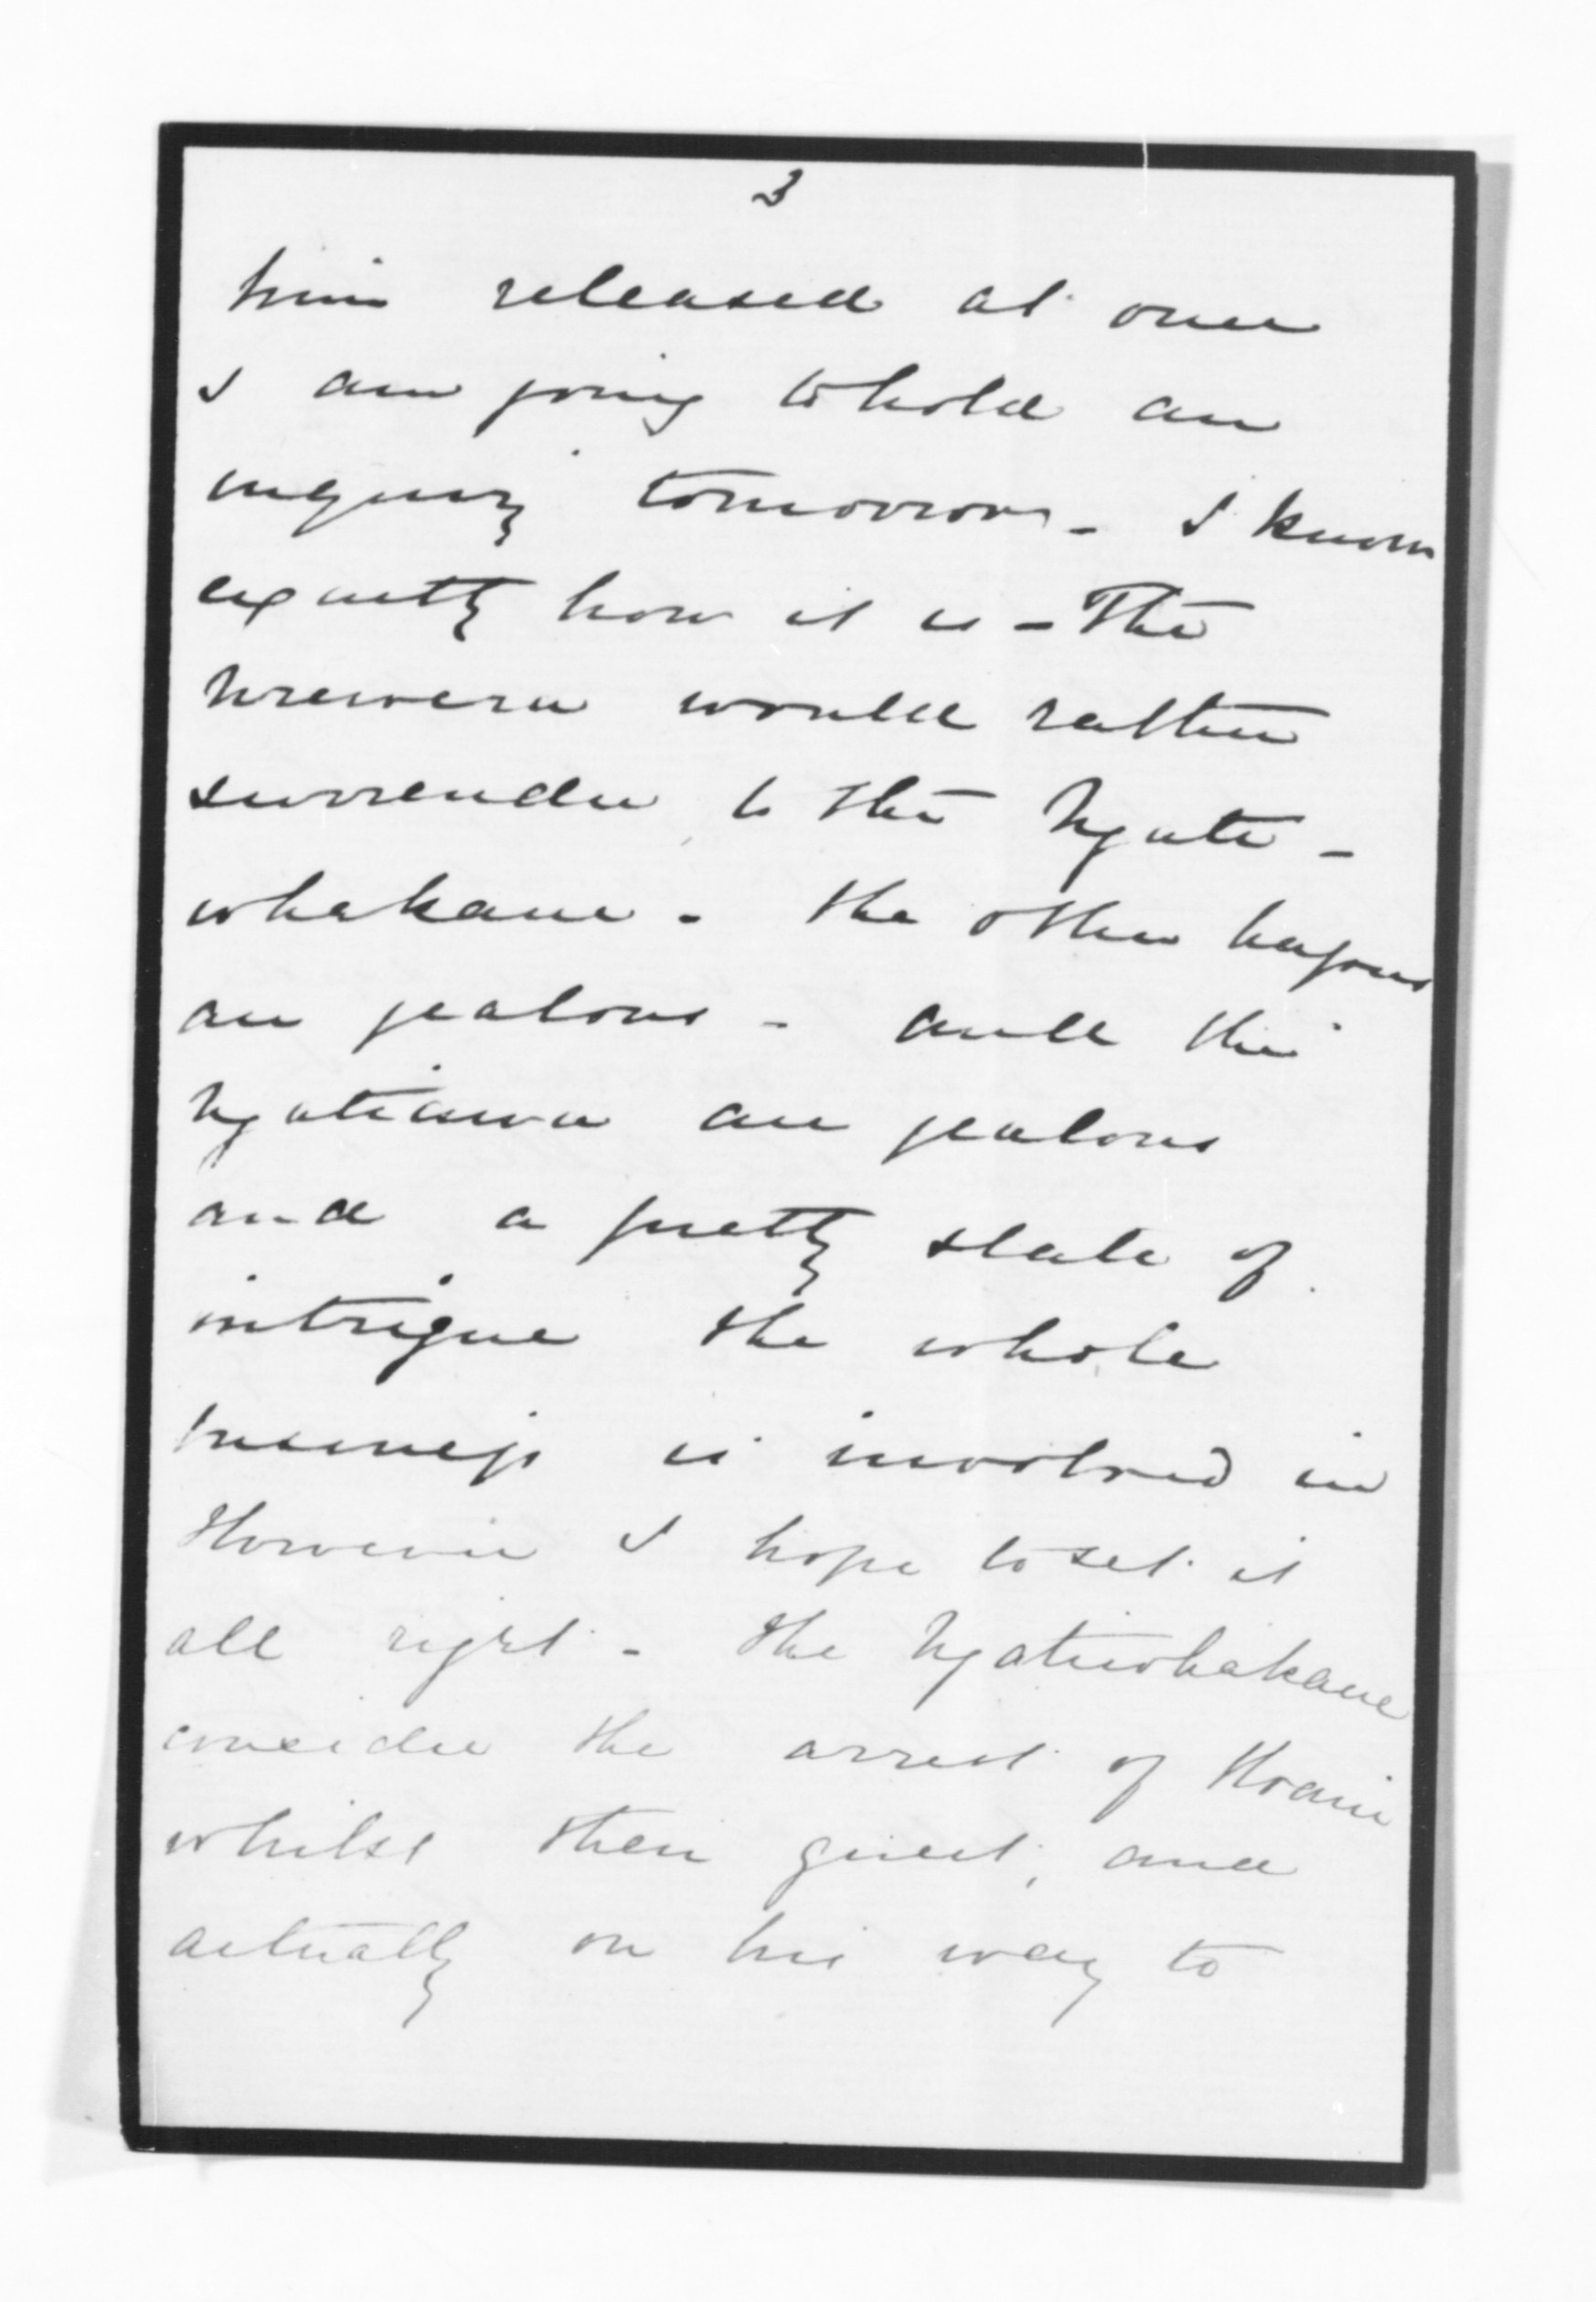 3
him released at once
I am going to hold an
inquiry tomorrow - I know
exactly how it is - The
Urewera would rather
surrender to the Ngati -
whakaue - the other hapus
are jealous - and the
Ngatiawa are jealous
and a pretty state of
intrigue the whole
business is involved in
However I hope to set it
all right - The Ngatiwhakaue
consider the arrest of
whilst their guest, and
actually on his way to